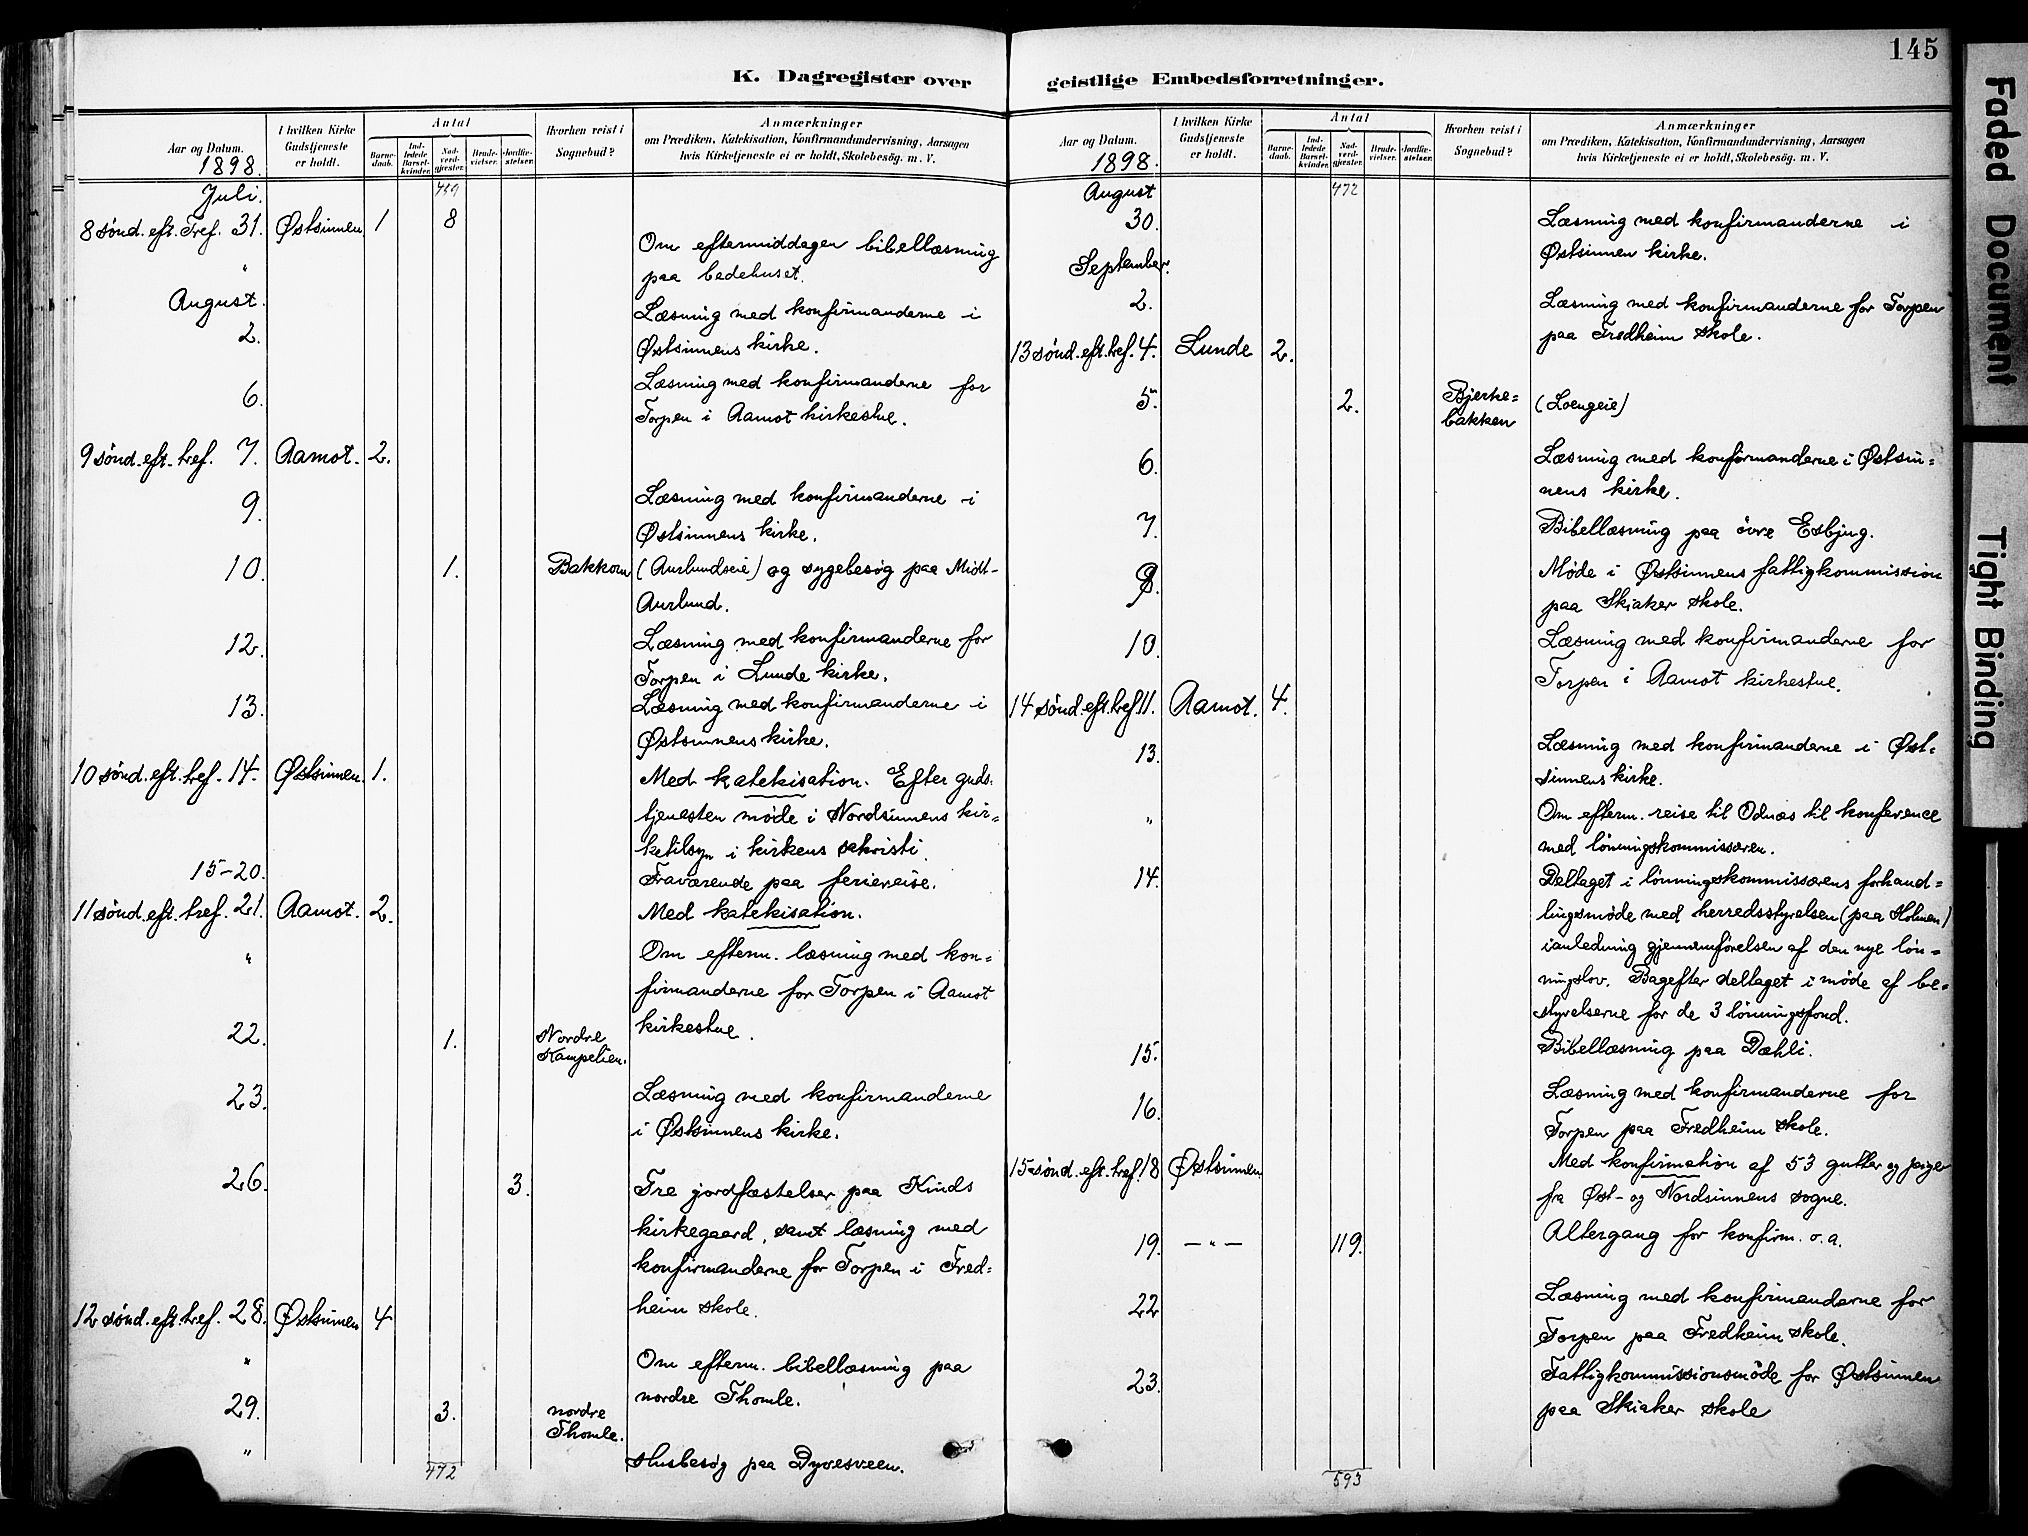 145
K. Dagregister over
geistlige Embedsforretninger.
Aar og Datum.
1898.
I hvilken Kirke Gudstjeneste er holdt.
Antal
Barnedaab.
Indledede Barselkvinder.
Nadverdgjester.
Brudevielser.
Jordfæstelser.
Hvorhen reist i Sognebud?
Anmærkninger
om Prædiken, Katekisation, Konfirmandundervisning, Aarsagen
hvis Kirketjeneste ei er holdt, Skolebesøg. m. V.
Juli. 459
8 sønd. eft. Tref. 31. Østsinnen 1 8
" Om eftermiddagen bibellæsning
paa bedehuset.
August.
2. Læsning med konfirmanderne i
Østsinnens kirke.
6. Læsning med konfirmanderne for
Torpen i Aamot kirkestue.
9 sønd. eft. tref. 7. Aamot. 2.
9. Læsning med konfirmanderne i
Østsinnens kirke.
10. 1. Bakkom (Aurlundseie) og sygebesøg paa Midt-
Aurlund.
12. Læsning med konfirmanderne for
Torpen i Lunde kirke.
13. Læsning med konfirmanderne i
Østsinnens kirke.
10 sønd. eft. tref. 14. Østsinnen 1. Med katekisation. Efter guds-
tjenesten møde i Nordsinnens kir=
ketilsyn i kirkens sakristi.
15-20. Fraværende paa feriereise.
11 sønd. eft. tref. 21. Aamot. 2. Med katekisation.
" Om efterm. læsning med kon=
firmanderne for Torpen i Aamot
kirkestue.
22. 1. Nordre
Kampelien.
23. Læsning med konfirmanderne
i Østsinnens kirke.
26. 3. Tre jordfæstelser paa Kinds
kirkegaard, samt læsning med
konfirmanderne for Torpen i Fred=
heim skole.
12 sønd. eft. tref. 28. Østsinnen 4
" Om efterm. bibellæsning paa
nordre Thomle.
29. 3. nordre
Thomle.
" Husbesøg paa Dyvesveen.
472
Aar og Datum.
1898.
I hvilken Kirke Gudstjeneste er holdt.
Antal
Barnedaab.
Indledede Barselkvinder.
Nadverdgjester.
Brudevielser.
Jordfæstelser.
Hvorhen reist i Sognebud?
Anmærkninger
om Prædiken, Katekisation, Konfirmandundervisning, Aarsagen
hvis Kirketjeneste ei er holdt, Skolebesøg. m. V.
August 472
30. Læsning med konfirmanderne i
Østsinnen kirke.
September.
2. Læsning med konfirmanderne for Torpen
paa Fredheim skole.
13 sønd. eft. tref. 4. Lunde 2.
5. 2. Bjerke=
bakken (Loengeie)
6. Læsning med konfirmanderne i Østsin=
nens kirke.
7. Bibellæsning paa övre Esbjug.
9. Møde i Østsinnens fattigkommission
paa Skiaker skole.
10. Læsning med konfirmanderne for
Torpen i Aamot kirkestue.
14 sønd. eft. tref. 11. Aamot. 4.
13. Læsning med konfirmanderne i Øst-
sinnens kirke.
" Om efterm. reise til Odnæs til konference
med lønningskommissæren.
14. Deltaget i lønningskommissærens forhand=
lingsmøde med herredsstyrelsen (paa Holmen)
ianledning gjennemførelsen af den nye løn=
ningslov. Bagefter deltaget i møde af be=
styrelserne for de 3 lønningsfond.
15. Bibellæsning paa Dæhli.
16. Læsning med konfirmanderne for
Torpen paa Fredheim skole.
15 sønd. eft. tref. 18 Østsinnen Med konfirmation af 53 gutter og piger
fra Øst- og Nordsinnens sogne.
19. — " — 119. Altergang for konfirm. o.a.
22 Læsning med konfirmanderne for
Torpen paa Fredheim skole.
23. Fattigkommissionsmöde for Østsinnen
paa Skiaker skole
593
Faded Document
Tight Binding